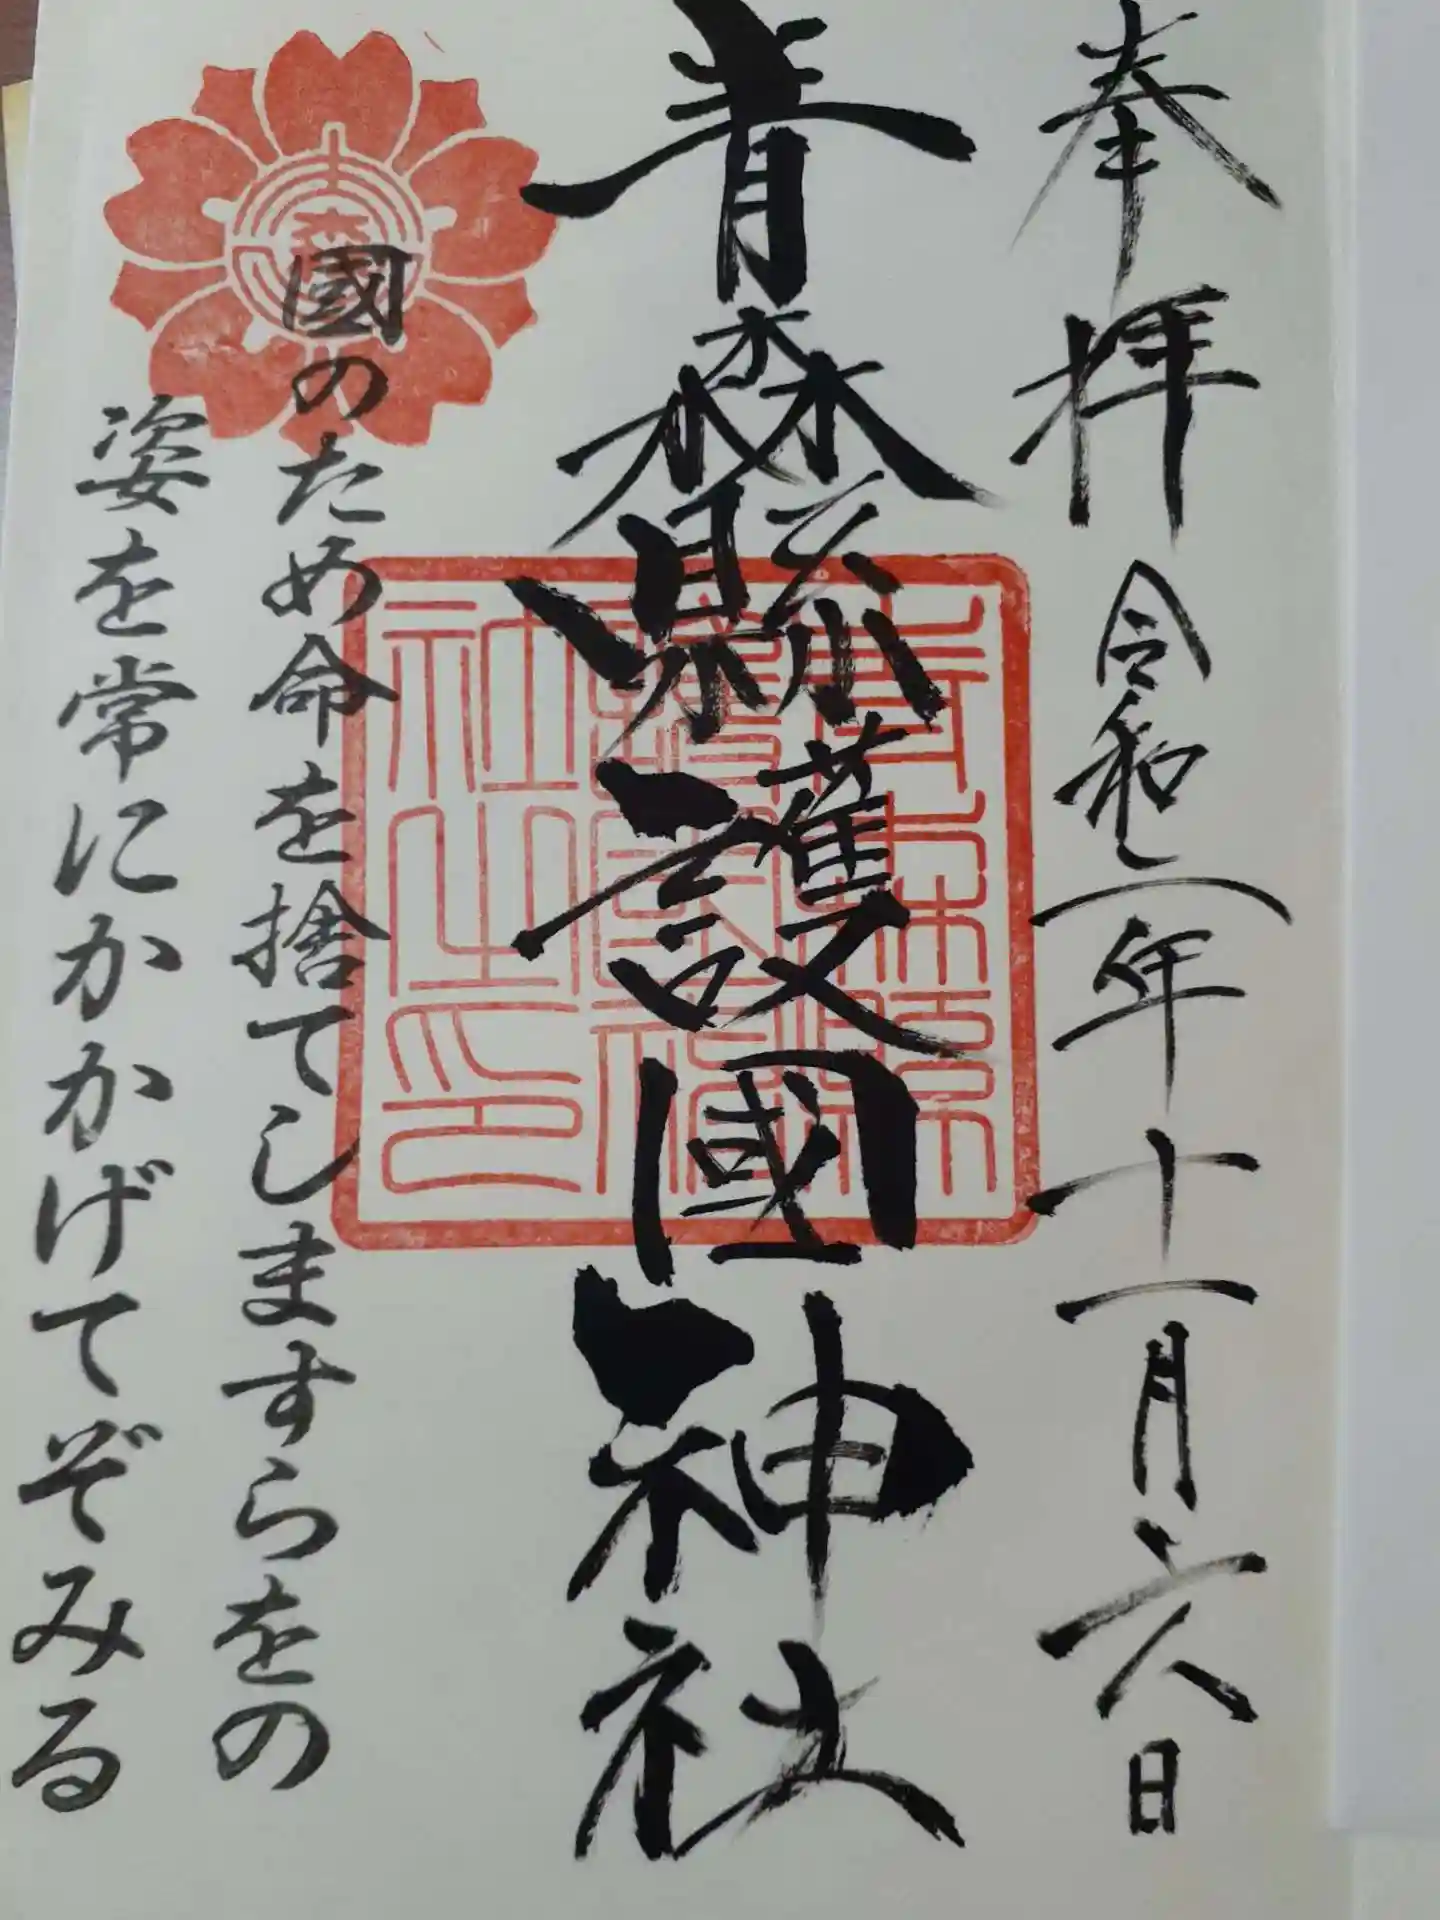 奉拝 令和二年十一月六日
青森縣護國神社
國のため命を捨てしますらをの
姿を常にかかげてぞみる
青森縣
護國神
社之印
森